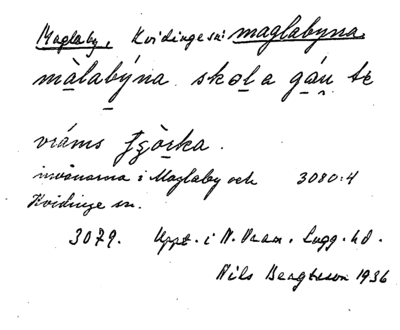 Maglaby, Kvidinge sn: maglabyna.
màlabýna skola gáu te
vráms ʃʒòrka.
invånarna i Maglaby och 3080:4
Kvidinge sn.
3079. Uppt. i N. Vram. Lugg. hd.
Nils Bengtsson 1936